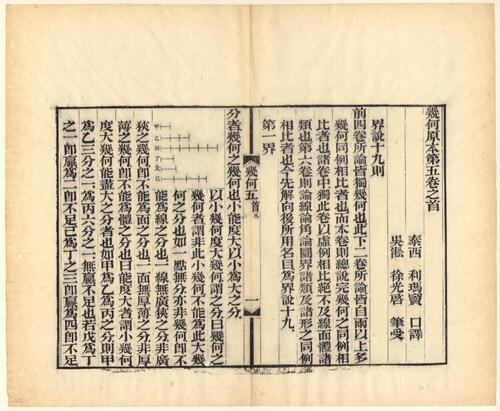 幾何原本第五卷之首
泰西 利瑪竇 口譯
吳淞 徐光啓 筆受
界說十九則
前四卷所論皆獨幾何也此下二卷所論皆自兩以上多
幾何同例相比者也而本卷則總說完幾何之同例相
比者也諸卷中獨此卷以虛例相比絕不及線面體諸
類也第六卷則論線論角論圜界諸類及諸形之同例
相比者也今先解向後所用名目爲界說十九
第一界
幾何五首 一
分者幾何之幾何也小能度大以小爲大之分
甲
乙
丙
丁
戊
己
以小幾何度大幾何謂之分曰幾何之
幾何者謂非此小幾何不能爲此大幾
何之分也如一點無分亦非幾何卽不
能爲線之分也一線無廣狹之分非廣
狹之幾何卽不能爲面之分也一面無厚薄之分非厚
薄之幾何卽不能爲體之分也曰能度大者謂小幾何
度大幾何能盡大之分者也如甲爲乙爲丙之分則甲
爲乙三分之一爲丙六分之一無贏不足也若戊爲丁
之一卽贏爲二卽不足己爲丁之三卽贏爲四卽不足